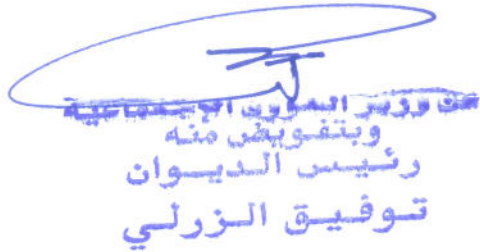 عن وزير الشؤون الإجتماعية
وبتفويض منه
رئيس الديوان
توفيق الزرلي